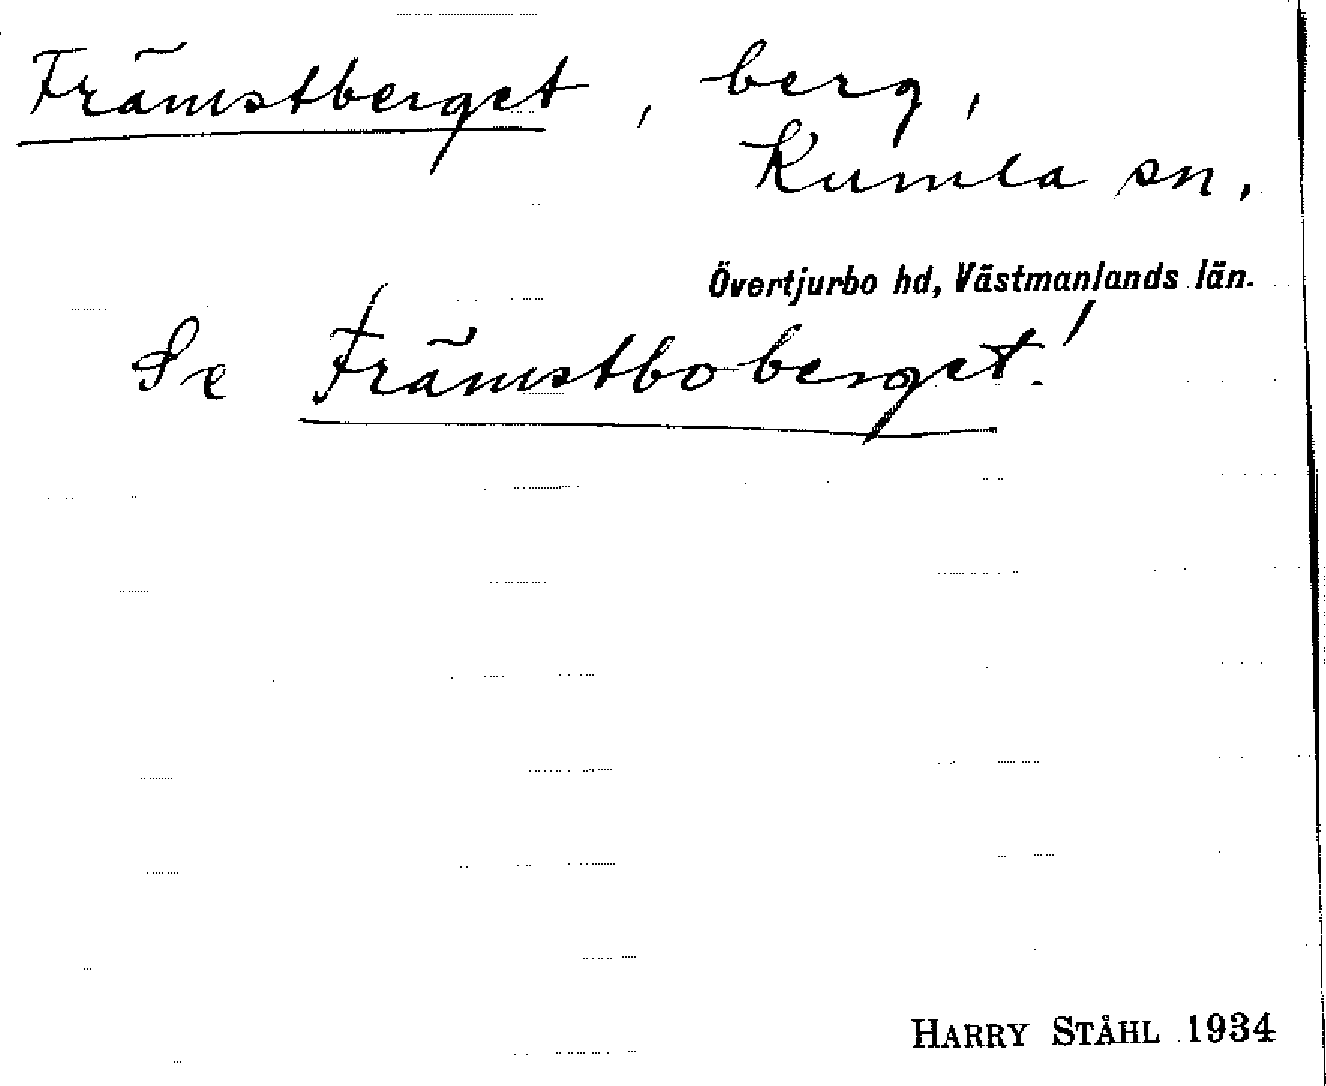 Främstberget, berg,
Kumla sn,
Övertjurbo hd, Västmanlands län.
Se Främstboberget!
HARRY STÅHL 1934